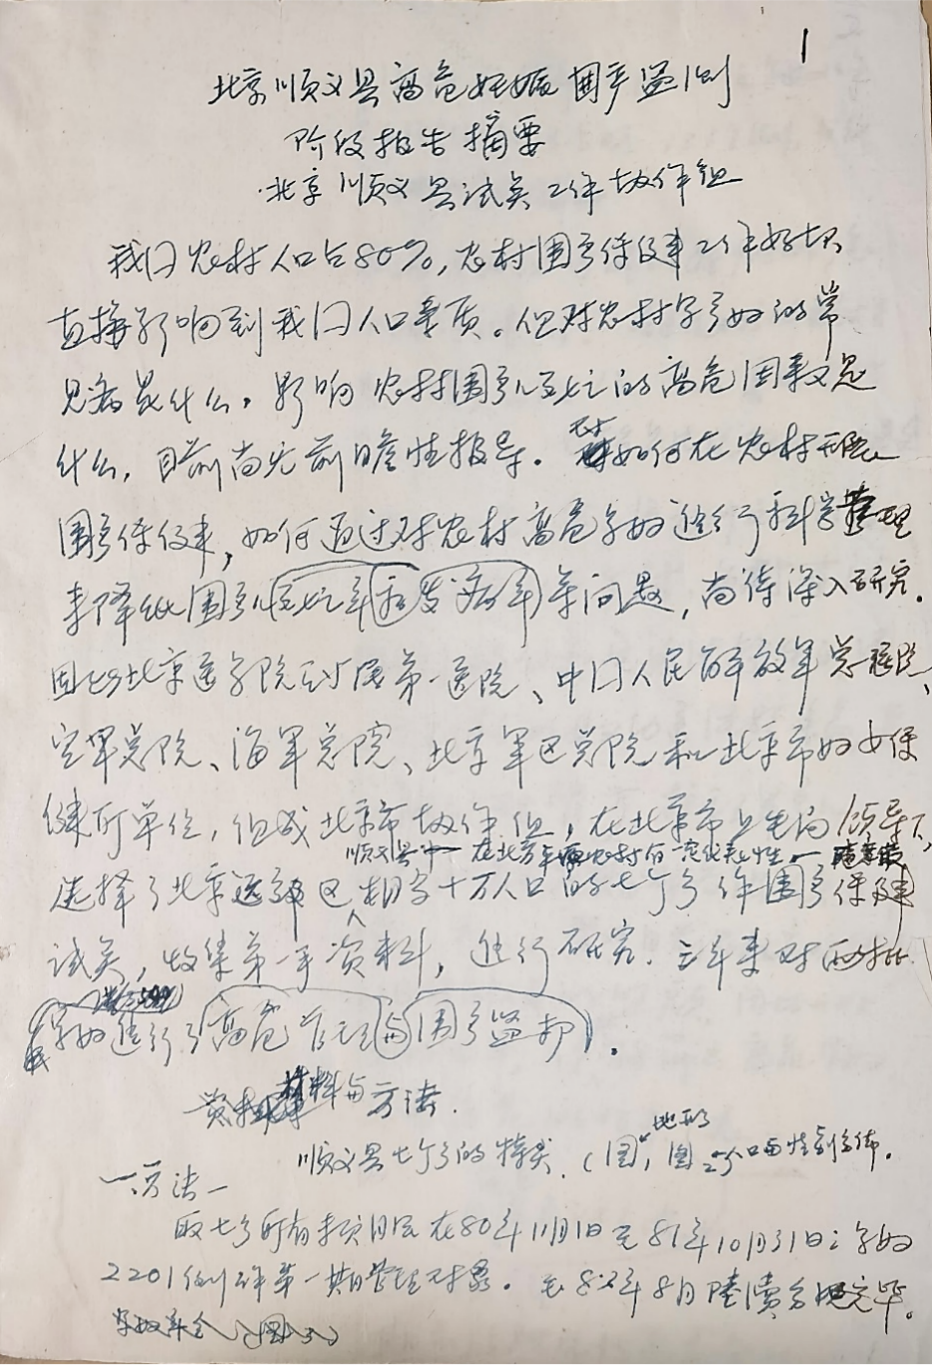 1
北京顺义县高危妊娠围产监测
阶段报告摘要
北京顺义县试点工作协作组
我国农村人口占80%,农村围产保健工作好坏
直接影响到我国人口素质。但对农村孕产妇的常
见病是什么,影响农村围产儿死亡的高危因素又是
什么,目前尚无前瞻性报导。对如何在农村开展
围产保健,如何通过对农村高危孕妇进行科学管理
来降低围产儿死亡率和发病率等问题,尚待深入研究。
因此北京医学院附属第一医院、中国人民解放军总医院、
空军总院、海军总院、北京军区总院和北京市妇女保
健所单位,组成北京市协作组,在北京市卫生局领导下,
顺义县 在北方平原农村有一定代表性
选择了北京远郊区相当十万人口的七个乡作围产保健
试点,收集第一手资料,进行研究.三年来对两批
孕妇进行了高危管理与围产监护。
材料与方法.
顺义县七个乡的特点.(图1地形 图2人口与性别分布.
一、方法一
取七乡所有末次月经在80年11月1日至81年10月31日之孕妇
2201例作第一期管理对象。至82年8月陆续分娩完毕。
(图3)